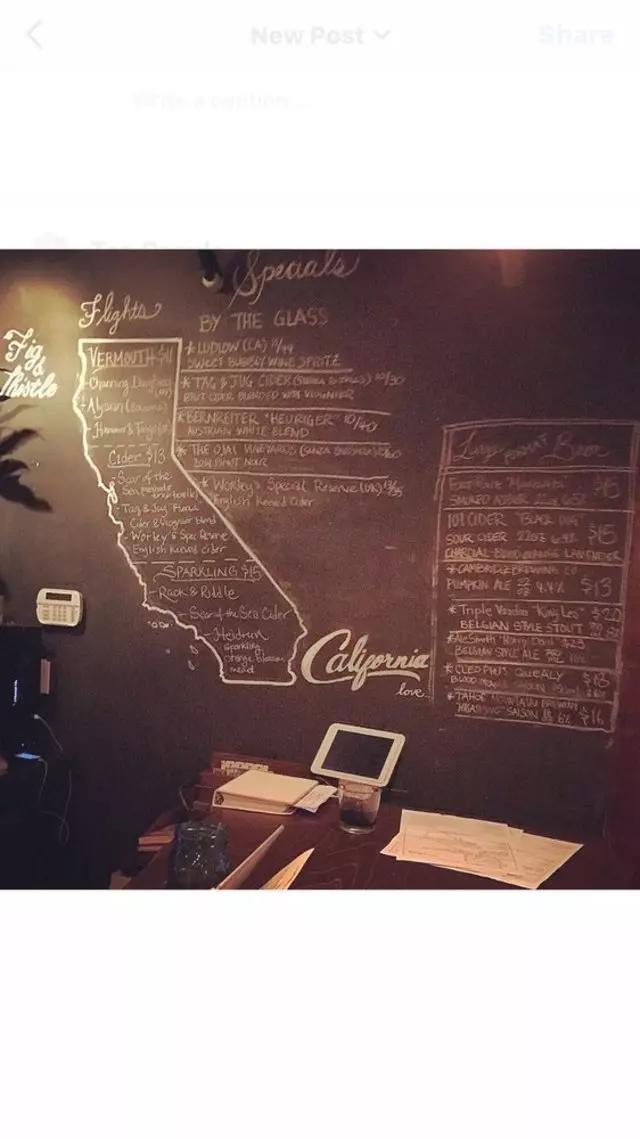 New Post
Share
Write a caption...
Tag People
Fig
&
Thistle
Flights
VERMOUTH $11
- Channing Daughters
- Alyson
- Hammer & Tongs
Cider $13
- Scar of the
Sea
- Tag & Jug
Cider & Viognier blend
- Worley's Spec Reserve
English keeved cider
SPARKLING $15
- Rack & Riddle
- Scar of the Sea Cider
- Heidrun
sparkling
orange blossom
mead
California
love
Specials
BY THE GLASS
* LUDLOW (CA)
SWEET BUBBLY WINE SPRITZ
* TAG & JUG CIDER 10/30
BRUT CIDER BLENDED WITH VIOGNIER
* BERNREITER "HEURIGER" 10/40
AUSTRIAN WHITE BLEND
* THE OJAI VINEYARDS
PINOT NOIR
* Worley's Special Reserve (UK)
English Keeved Cider
Large FORMAT Beer
$15
SMOKED
101 CIDER "BLACK DOG" $15
SOUR CIDER 22OZ
CHARCOAL BLOOD ORANGE LAVENDER
* CAMBRIDGE BREWING CO
PUMPKIN ALE 22 $13
* Triple Voodoo "King Leo" $20
BELGIAN STYLE STOUT
* AleSmith $23
BELGIAN STYLE ALE
* CLEOPHUS QUEALY $18
BLOOD SAISON
* TAHOE MOUNTAIN BREWING
SAISON 6% $16